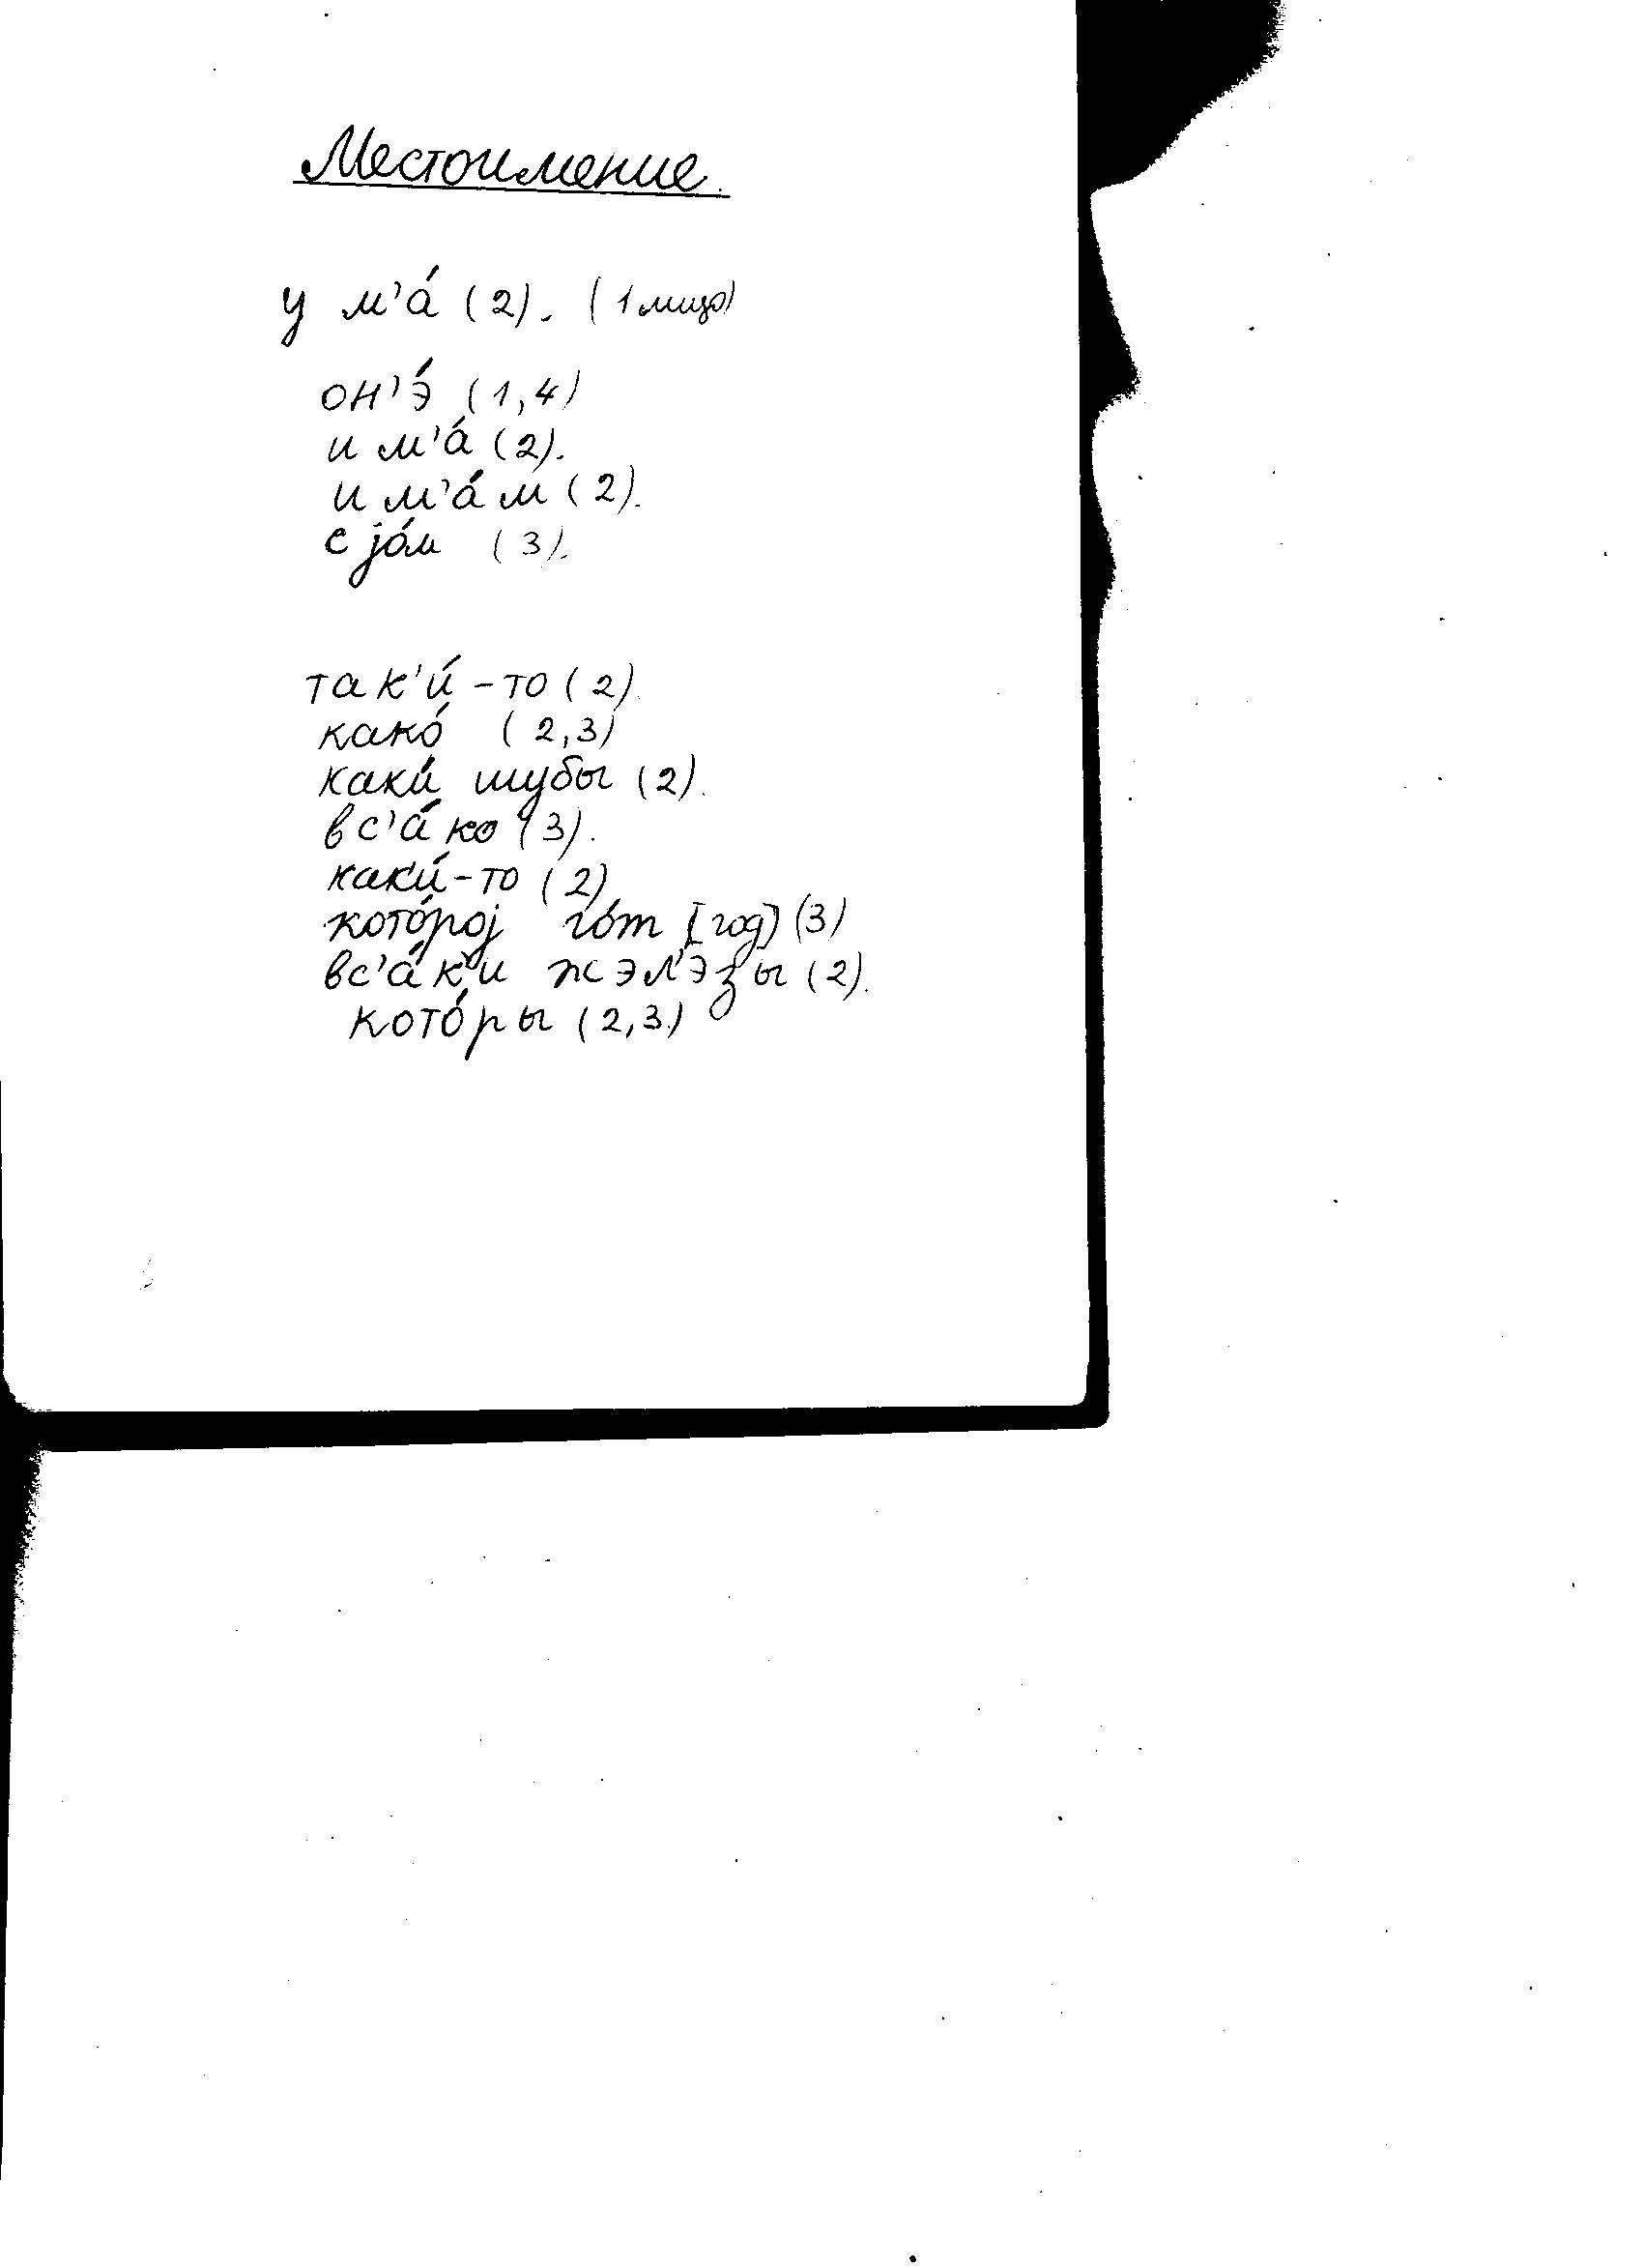 Местоимение.
у м'а́ (2). (1 лицо)
он'э́ (1,4)
и м'а́ (2).
и м'а́м (2).
с jо́м (3).
так'и́-то (2).
како́ (2,3)
каки́ шубы (2).
вс'а́ко (3).
как'и́-то (2)
кото́рој го́т [год] (3)
вс'а́к'и жэл'э́зы (2).
кото́ры (2,3)